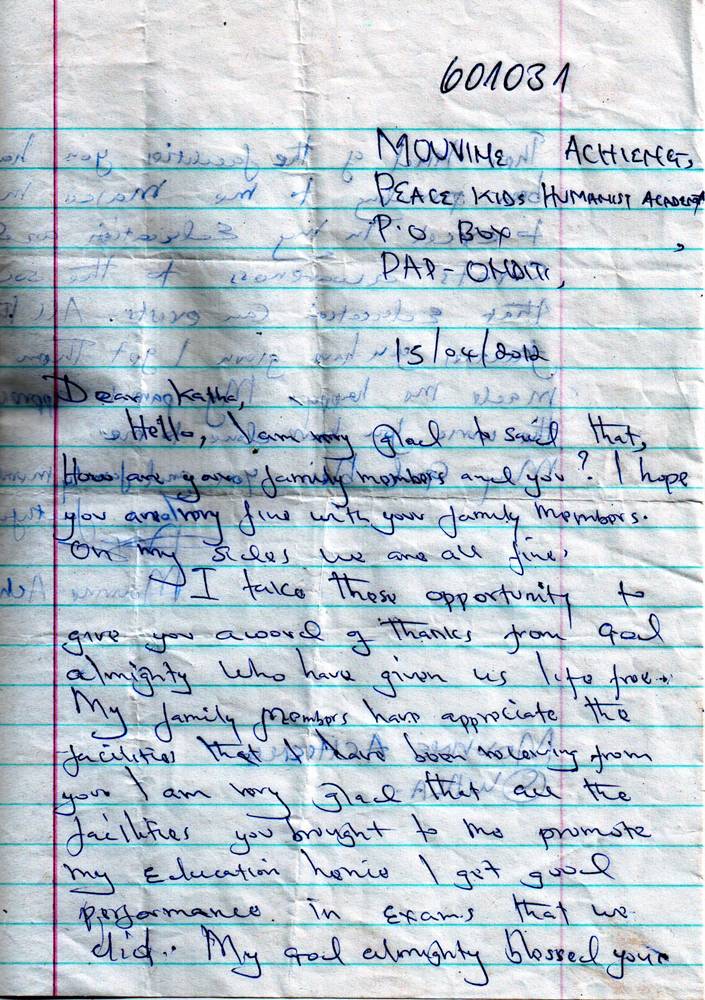 601031
MOUVINE ACHIENG,
PEACE KIDS HUMANIST ACADEMY
P.O BOX ,
PAP-ONDITI,
15/04/2012
Dear Katha,
Hello, I am very glad to said that,
How are your family members and you? I hope
you are very fine with your family members.
On my sides we are all fine.
I take these opportunity to
give you a word of thanks from God
almighty who have given us life free.
My family members have appreciate the
facilities that I have been receiving from
your I am very glad that all the
facilities you brought to me promote
my education hence I get good
performance in exams that we
did. My God almighty blessed your